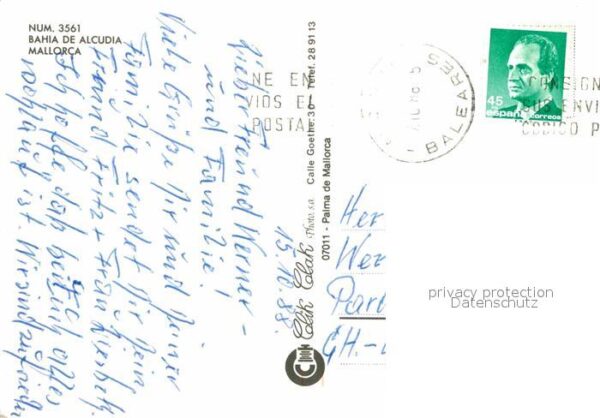 NUM. 3561
BAHIA DE ALCUDIA
MALLORCA
15.10.88.
Lieber Freund Werner -
und Familie!
Viele Grüße Dir und Deiner
Familie sendet Dir Dein
Freund Fritz + Frau
Ich hoffe daß bei Euch alles
wohlauf ist. Wir sind zufrieden
Clik Clak Photo, s.a. Calle Goethe, 30 Telef. 28 91 13
07011 - Palma de Mallorca
NE EN
VIOS EL
POSTA
BALEARES
CONSIGN
SUS ENVI
CODIGO P
45
españa correos
Her
Wer
Par
GH.-
privacy protection
Datenschutz